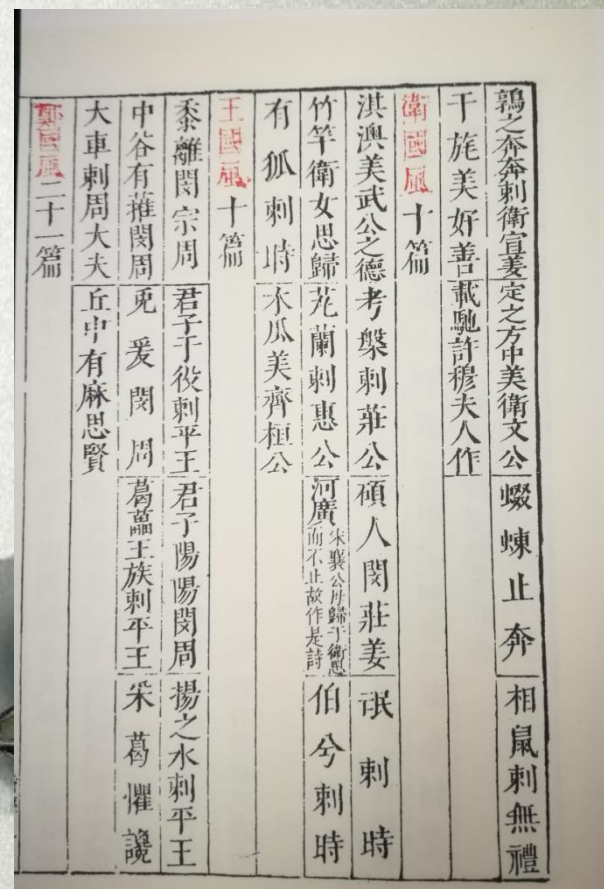 鶉之奔奔刺衛宣姜 定之方中美衛文公 蝃蝀止奔 相鼠刺無禮
干旄美好善 載馳許穆夫人作
衛國風十篇
淇澳美武公之德 考槃刺莊公 碩人閔莊姜 氓刺時
竹竿衛女思歸 芄蘭刺惠公 河廣宋襄公母歸于衛思而不止故作是詩 伯兮刺時
有狐刺時 木瓜美齊桓公
王國風十篇
黍離閔宗周 君子于役刺平王 君子陽陽閔周 揚之水刺平王
中谷有蓷閔周 兎爰閔周 葛藟王族刺平王 采葛懼讒
大車刺周大夫 丘中有麻思賢
鄭國風二十一篇